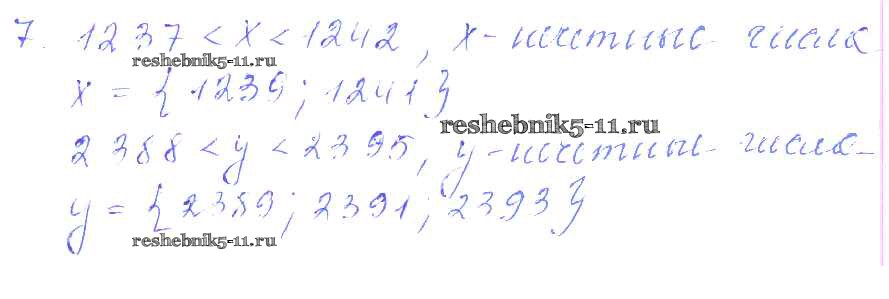 7. 1237 < x < 1242, x - нечетные числа
reshebnik5-11.ru
x = {1239; 1241}
reshebnik5-11.ru
2388 < y < 2395, y - нечетные числа
y = {2389; 2391; 2393}
reshebnik5-11.ru